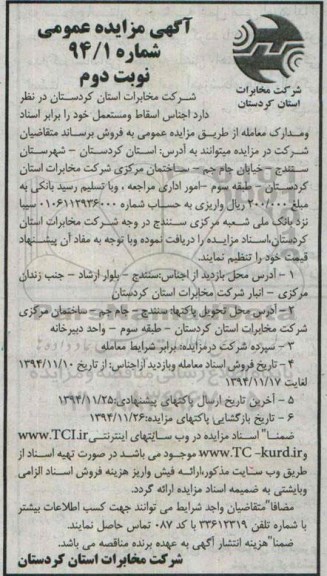 آگهی مزایده عمومی
شماره ۹۴/۱
نوبت دوم
شرکت مخابرات
استان کردستان
شرکت مخابرات استان کردستان در نظر
دارد اجناس اسقاط ومستعمل خود را برابر اسناد
ومدارک معامله از طریق مزایده عمومی به فروش برساند متقاضیان
شرکت در مزایده میتوانند به آدرس: استان کردستان - شهرستان
سنندج - خیابان جام جم - ساختمان مرکزی شرکت مخابرات استان
کردستان - طبقه سوم -امور اداری مراجعه ، وبا تسلیم رسید بانکی به
مبلغ ۲۰۰/۰۰۰ ریال واریزی به حساب شماره ۰۱۰۶۱۱۲۹۳۶۰۰۰ سیبا
نزد بانک ملی شعبه مرکزی سنندج در وجه شرکت مخابرات استان
کردستان،اسناد مزایده را دریافت نموده وبا توجه به مفاد آن پیشنهاد
قیمت خود را تنظیم نمایند.
۱ - آدرس محل بازدید از اجناس:سنندج - بلوار ارشاد - جنب زندان
مرکزی - انبار شرکت مخابرات استان کردستان
۲ - آدرس محل تحویل پاکتها: سنندج - جام جم - ساختمان مرکزی
شرکت مخابرات استان کردستان - طبقه سوم - واحد دبیرخانه
۳ - سپرده شرکت درمزایده: برابر شرایط معامله
۴ - تاریخ فروش اسناد معامله وبازدید ازاجناس: از تاریخ ۱۳۹۴/۱۱/۱۰
لغایت ۱۳۹۴/۱۱/۱۷
۵ - آخرین تاریخ ارسال پاکتهای پیشنهادی:۱۳۹۴/۱۱/۲۵
۶ - تاریخ بازگشایی پاکتهای مزایده:۱۳۹۴/۱۱/۲۶
ضمنا" اسناد مزایده در وب سایتهای اینترنتی www.TCI.ir
و www.TC -kurd.ir موجود می باشد در صورت تهیه اسناد از
طریق وب سایت مذکور،ارائه فیش واریز هزینه فروش اسناد الزامی
وبایشتی به ضمیمه اسناد مزایده ارائه گردد.
مضافا"متقاضیان واجد شرایط می توانند جهت کسب اطلاعات بیشتر
با شماره تلفن ۳۳۶۱۲۳۱۹ با کد ۰۸۷ تماس حاصل نمایند.
وضمنا"هزینه انتشار آگهی به عهده برنده مناقصه می باشد.
شرکت مخابرات استان کردستان